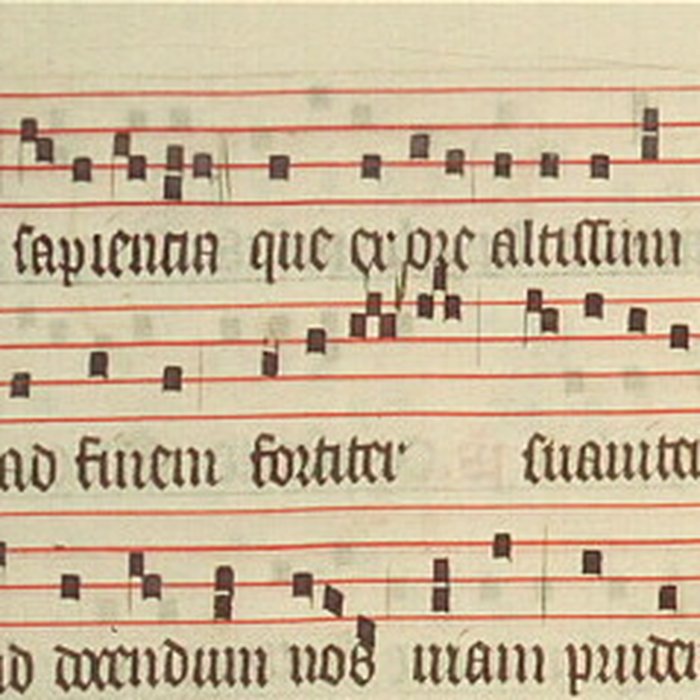 sapientia que ex ore altissimi
ad finem fortiter suauite
ad docendum nos uiam pruden